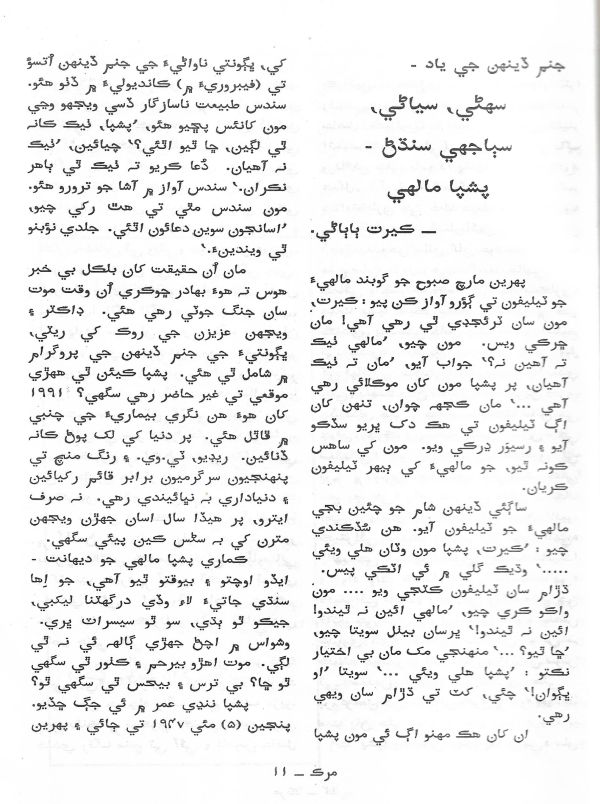 جنم ڏينهن جي ياد -
سهڻي، سياڻي،
سٻاجهي سنڌڻ -
پشپا مالهي
— ڪيرت ٻاٻاڻي.
پهرين مارچ صبوح جو گوبند مالهيءَ
جو ٽيليفون تي ڳؤرو آواز ڪن پيو : ڪيرت،
مون سان ٽرئجڊي ٿي رهي آهي! مان
ڇرڪي ويس. مون چيو، ’مالهي ٺيڪ
ته آهين نه؟‘ جواب آيو، ’مان ته ٺيڪ
آهيان، پر پشپا مون کان موڪلائي رهي
آهي ...‘ مان ڪجهه چوان، تنهن کان
اڳ ٽيليفون تي هڪ دک ڀريو سڏڪو
آيو ۽ رسيور ڍرڪي ويو. مون کي ساهس
ڪونه ٿيو، جو مالهيءَ کي ٻيهر ٽيليفون
ڪريان.
ساڳئي ڏينهن شام جو چئين بجي
مالهيءَ جو ٽيليفون آيو. هن سُڏڪندي
چيو : ’ڪيرت، پشپا مون وٽان هلي ويئي
.....‘ وڌيڪ گلي ۾ ئي اٽڪي پيس.
ڌڙام سان ٽيليفون ڪٽجي ويو .... مون
واڪو ڪري چيو، ’مالهي ائين نه ٿيندو!
ائين نه ٿيندو!‘ ڀرسان بيٺل سويتا چيو،
’ڇا ٿيو؟ ...‘ منهنجي مک مان بي اختيار
نڪتو : ’پشپا هلي ويئي ...‘ سويتا ’او
ڀڳوان!‘ چئي، کٽ تي ڌڙام سان ويهي
رهي.
ان کان هڪ مهنو اڳ ئي مون پشپا
کي، ڀڳونتي ناواڻيءَ جي جنم ڏينهن اُتسؤ
تي (فيبروريءَ ۾) ڪانديوليءَ ۾ ڏٺو هئو.
سندس طبيعت ناسازگار ڏسي ويجهو وڃي
مون کانئس پڇيو هئو، ’پشپا، ٺيڪ ڪانه
ٿي لڳين، ڇا ٿيو اٿئي؟‘ چيائين، ’ٺيڪ
نه آهيان. دُعا ڪريو ته ٺيڪ ٿي ٻاهر
نڪران.‘ سندس آواز ۾ آشا جو ترورو هئو.
مون سندس مٿي تي هٿ رکي چيو،
’اسانجون سوين دعائون اٿئي. جلدي نؤبنو
ٿي ويندينءَ.‘
مان اُن حقيقت کان بلڪل بي خبر
هوس ته هوءَ بهادر ڇوڪري اُن وقت موت
سان جنگ جوٽي رهي هئي. ڊاڪٽر ۽
ويجهن عزيزن جي روڪ کي ريٽي،
ڀڳونتيءَ جي جنم ڏينهن جي پروگرام
۾ شامل ٿي هئي. پشپا ڪيئن ٿي ههڙي
موقعي تي غير حاضر رهي سگهي؟ ۱۹۹۱
کان هوءَ هن نگري بيماريءَ جي چنبي
۾ ڦاٿل هئي. پر دنيا کي لک پوڻ ڪانه
ڏنائين. ريڊيو، ٽي.وي. ۽ رنگ منچ تي
پنهنجيون سرگرميون برابر قائم رکيائين
۽ دنياداري به نڀائيندي رهي. نه صرف
ايترو، پر هيڏا سال اسان جهڙن ويجهن
مترن کي به سڻس ڪين پيئي سگهي.
ڪماري پشپا مالهي جو ديهانت -
ايڏو اوچتو ۽ بيوقتو ٿيو آهي، جو اِها
سنڌي جاتيءَ لاءِ وڏي درگهٽنا ليکبي،
جيڪو ٿو ٻڌي، سو ٿو سيسراٽ ڀري.
وشواس ۾ اچڻ جهڙي ڳالهه ئي نه ٿي
لڳي. موت اهڙو بيرحم ۽ ڪٺور ٿي سگهي
ٿو ڇا؟ بي ترس ۽ بيڪس ٿي سگهي ٿو؟
پشپا ننڍي عمر ۾ ئي جڳ ڇڏيو.
پنجين (۵) مئي ۱۹۴۷ تي ڄائي ۽ پهرين
مرڪ — ۱۱